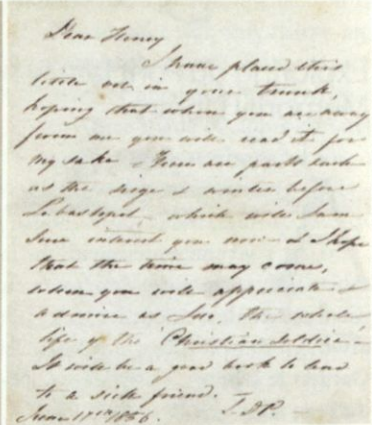 Dear Henry
I have placed this
little not in your trunk,
hoping that when you are away
from me you will read it for
my sake. There are parts such
as the siege & winter before
Sebastopol which will I am
sure interest you now - & I hope
that the time may come,
when you will appreciate &
admire as I do, the whole
life of the "Christian Soldier" -
It will be a good book to lend
to a sick friend.
June 17th 1856.